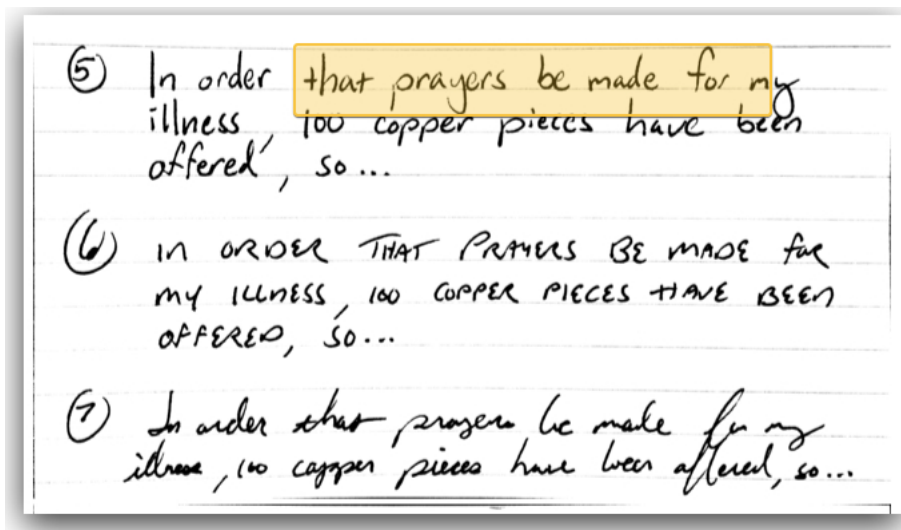 5 In order that prayers be made for my
illness, 100 copper pieces have been
offered, so...
6 IN ORDER THAT PRAYERS BE MADE for
MY ILLNESS, 100 COPPER PIECES HAVE BEEN
OFFERED, SO...
7 In order that prayers be made for my
illness, 100 copper pieces have been offered, so...